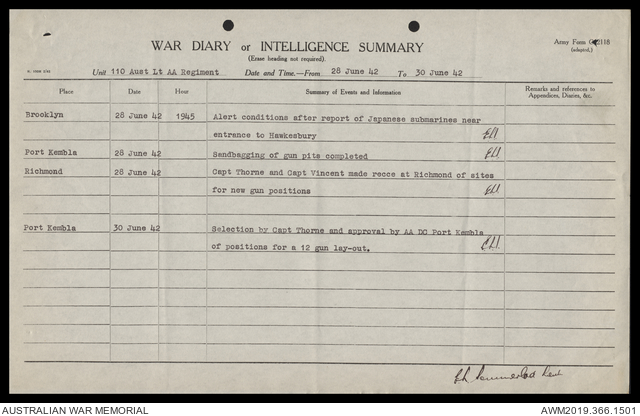 WAR DIARY or INTELLIGENCE SUMMARY
(Erase heading not required).
Army Form
(adapted.)
Unit 110 Aust Lt AA Regiment Date and Time.—From 28 June 42 To 30 June 42
Place Date Hour Summary of Events and Information Remarks and references to
Appendices, Diaries, &c.
Brooklyn 28 June 42 1945 Alert conditions after report of Japanese submarines near
entrance to Hawkesbury
Port Kembla 28 June 42 Sandbagging of gun pits completed
Richmond 28 June 42 Capt Thorne and Capt Vincent made recce at Richmond of sites
for new gun positions
Port Kembla 30 June 42 Selection by Capt Thorne and approval by AA DC Port Kembla
of positions for a 12 gun lay-out.
AUSTRALIAN WAR MEMORIAL AWM2019.366.1501